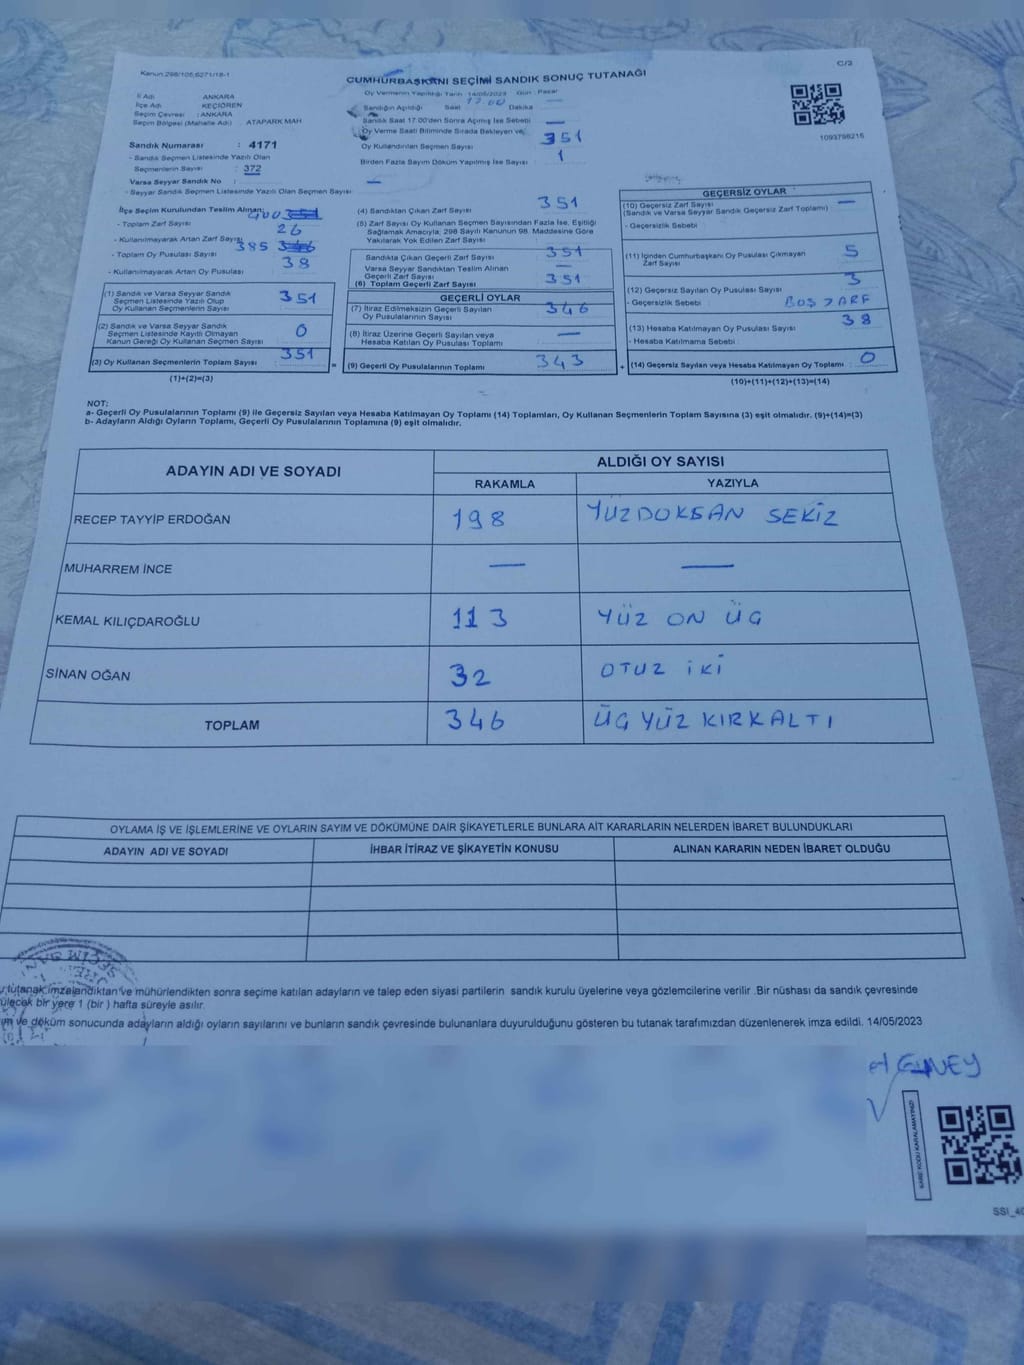 Kanun:298/105,6271/18-1
C/3
CUMHURBAŞKANI SEÇİMİ SANDIK SONUÇ TUTANAĞI
İl Adı : ANKARA
İlçe Adı : KEÇİÖREN
Seçim Çevresi : ANKARA
Seçim Bölgesi (Mahalle Adı) : ATAPARK MAH
Sandık Numarası : 4171
- Sandık Seçmen Listesinde Yazılı Olan
Seçmenlerin Sayısı : 372
Varsa Seyyar Sandık No :
- Seyyar Sandık Seçmen Listesinde Yazılı Olan Seçmen Sayısı : —
Oy Vermenin Yapıldığı Tarih : 14/05/2023 Gün : Pazar
Sandığın Açıldığı Saat 17.00 Dakika —
Sandık Saat 17:00'den Sonra Açılmış İse Sebebi —
Oy Verme Saati Bitiminde Sırada Bekleyen ve
Oy Kullandırılan Seçmen Sayısı 351
Birden Fazla Sayım Döküm Yapılmış İse Sayısı : 1
1093798216
İlçe Seçim Kurulundan Teslim Alınan:
- Toplam Zarf Sayısı : 400
- Kullanılmayarak Artan Zarf Sayısı : 26
- Toplam Oy Pusulası Sayısı : 385
- Kullanılmayarak Artan Oy Pusulası : 38
(1) Sandık ve Varsa Seyyar Sandık
Seçmen Listesinde Yazılı Olup
Oy Kullanan Seçmenlerin Sayısı : 351
(2) Sandık ve Varsa Seyyar Sandık
Seçmen Listesinde Kayıtlı Olmayan
Kanun Gereği Oy Kullanan Seçmen Sayısı : 0
(3) Oy Kullanan Seçmenlerin Toplam Sayısı : 351
(1)+(2)=(3)
(4) Sandıktan Çıkan Zarf Sayısı : 351
(5) Zarf Sayısı Oy Kullanan Seçmen Sayısından Fazla İse, Eşitliği
Sağlamak Amacıyla, 298 Sayılı Kanunun 98. Maddesine Göre
Yakılarak Yok Edilen Zarf Sayısı :
Sandıkta Çıkan Geçerli Zarf Sayısı : 351
Varsa Seyyar Sandıktan Teslim Alınan
Geçerli Zarf Sayısı : —
(6) Toplam Geçerli Zarf Sayısı : 351
GEÇERLİ OYLAR
(7) İtiraz Edilmeksizin Geçerli Sayılan
Oy Pusulalarının Sayısı : 346
(8) İtiraz Üzerine Geçerli Sayılan veya
Hesaba Katılan Oy Pusulası Toplamı : —
= (9) Geçerli Oy Pusulalarının Toplamı : 343
GEÇERSİZ OYLAR
(10) Geçersiz Zarf Sayısı
(Sandık ve Varsa Seyyar Sandık Geçersiz Zarf Toplamı) : —
- Geçersizlik Sebebi :
(11) İçinden Cumhurbaşkanı Oy Pusulası Çıkmayan
Zarf Sayısı : 5
(12) Geçersiz Sayılan Oy Pusulası Sayısı : 3
- Geçersizlik Sebebi : BOŞ ZARF
(13) Hesaba Katılmayan Oy Pusulası Sayısı : 38
- Hesaba Katılmama Sebebi :
+ (14) Geçersiz Sayılan veya Hesaba Katılmayan Oy Toplamı : 0
(10)+(11)+(12)+(13)=(14)
NOT:
a- Geçerli Oy Pusulalarının Toplamı (9) ile Geçersiz Sayılan veya Hesaba Katılmayan Oy Toplamı (14) Toplamları, Oy Kullanan Seçmenlerin Toplam Sayısına (3) eşit olmalıdır. (9)+(14)=(3)
b- Adayların Aldığı Oyların Toplamı, Geçerli Oy Pusulalarının Toplamına (9) eşit olmalıdır.
ADAYIN ADI VE SOYADI
ALDIĞI OY SAYISI
RAKAMLA YAZIYLA
RECEP TAYYİP ERDOĞAN 198 YÜZDOKSAN SEKİZ
MUHARREM İNCE — —
KEMAL KILIÇDAROĞLU 113 YÜZ ON ÜÇ
SİNAN OĞAN 32 OTUZ İKİ
TOPLAM 346 ÜÇ YÜZ KIRKALTI
OYLAMA İŞ VE İŞLEMLERİNE VE OYLARIN SAYIM VE DÖKÜMÜNE DAİR ŞİKAYETLERLE BUNLARA AİT KARARLARIN NELERDEN İBARET BULUNDUKLARI
ADAYIN ADI VE SOYADI İHBAR İTİRAZ VE ŞİKAYETİN KONUSU ALINAN KARARIN NEDEN İBARET OLDUĞU
tutanak imzalandıktan ve mühürlendikten sonra seçime katılan adayların ve talep eden siyasi partilerin sandık kurulu üyelerine veya gözlemcilerine verilir .Bir nüshası da sandık çevresinde
ülecek bir yere 1 (bir ) hafta süreyle asılır.
ım ve döküm sonucunda adayların aldığı oyların sayılarını ve bunların sandık çevresinde bulunanlara duyurulduğunu gösteren bu tutanak tarafımızdan düzenlenerek imza edildi. 14/05/2023
GÜNEY
KARE KODU KARALAMAYINIZ!
SSI_40